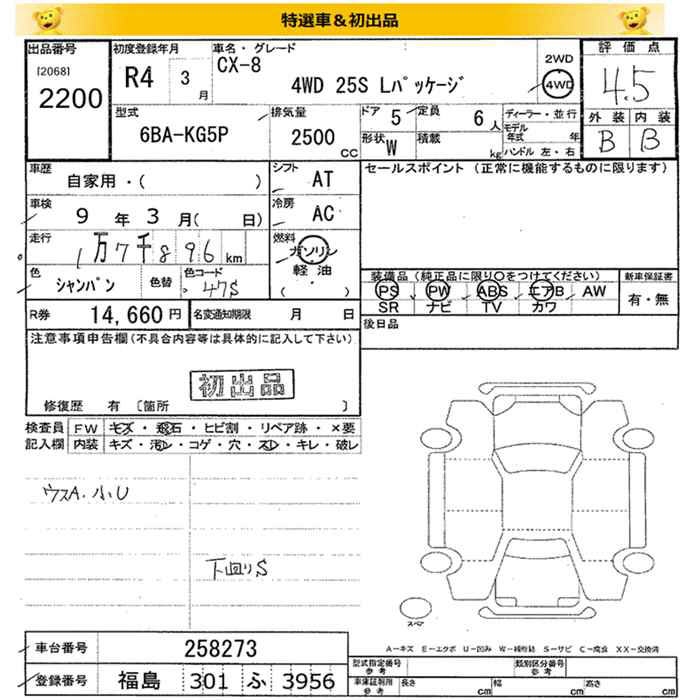 特選車&初出品
出品番号 初度登録年月 車名・グレード 2WD 評価点
[2068] R4 3月 CX-8 4WD 25S Lパッケージ 4WD 4.5
2200
型式 排気量 ドア 5 定員 6人 ディーラー・並行 外装 内装
6BA-KG5P 2500CC 形状 W 積載 kg モデル年式 年 B B
ハンドル 左・右
車歴 シフト セールスポイント(正常に機能するものに限ります)
自家用・( ) AT
車検 冷房
9年3月( 日) AC
走行 燃料
1万7千896km ガソリン
色 色替 色コード 軽油 装備品(純正品に限り○をつけてください) 新車保証書
シャンパン 47S ( ・ ) PS PW ABS エアB AW 有・無
SR ナビ TV カワ
R券 14,660円 名変通知期限 月 日 後日品
注意事項申告欄(不具合内容等は具体的に記入して下さい)
初出品
修復歴 有 〔箇所 〕
検査員 FW キズ・飛石・ヒビ割・リペア跡・×要
記入欄 内装 キズ・汚レ・コゲ・穴・スレ・キレ・破レ
ウスA.小U
下回りS
スペア
A-キズ E-エクボ U-凹み W-補修跡 S-サビ C-腐食 XX-交換済
車台番号 258273 型式指定番号 参考 類別区分番号 参考
登録番号 福島 301 ふ 3956 車庫証明用 参考 長さ cm 幅 cm 高さ cm